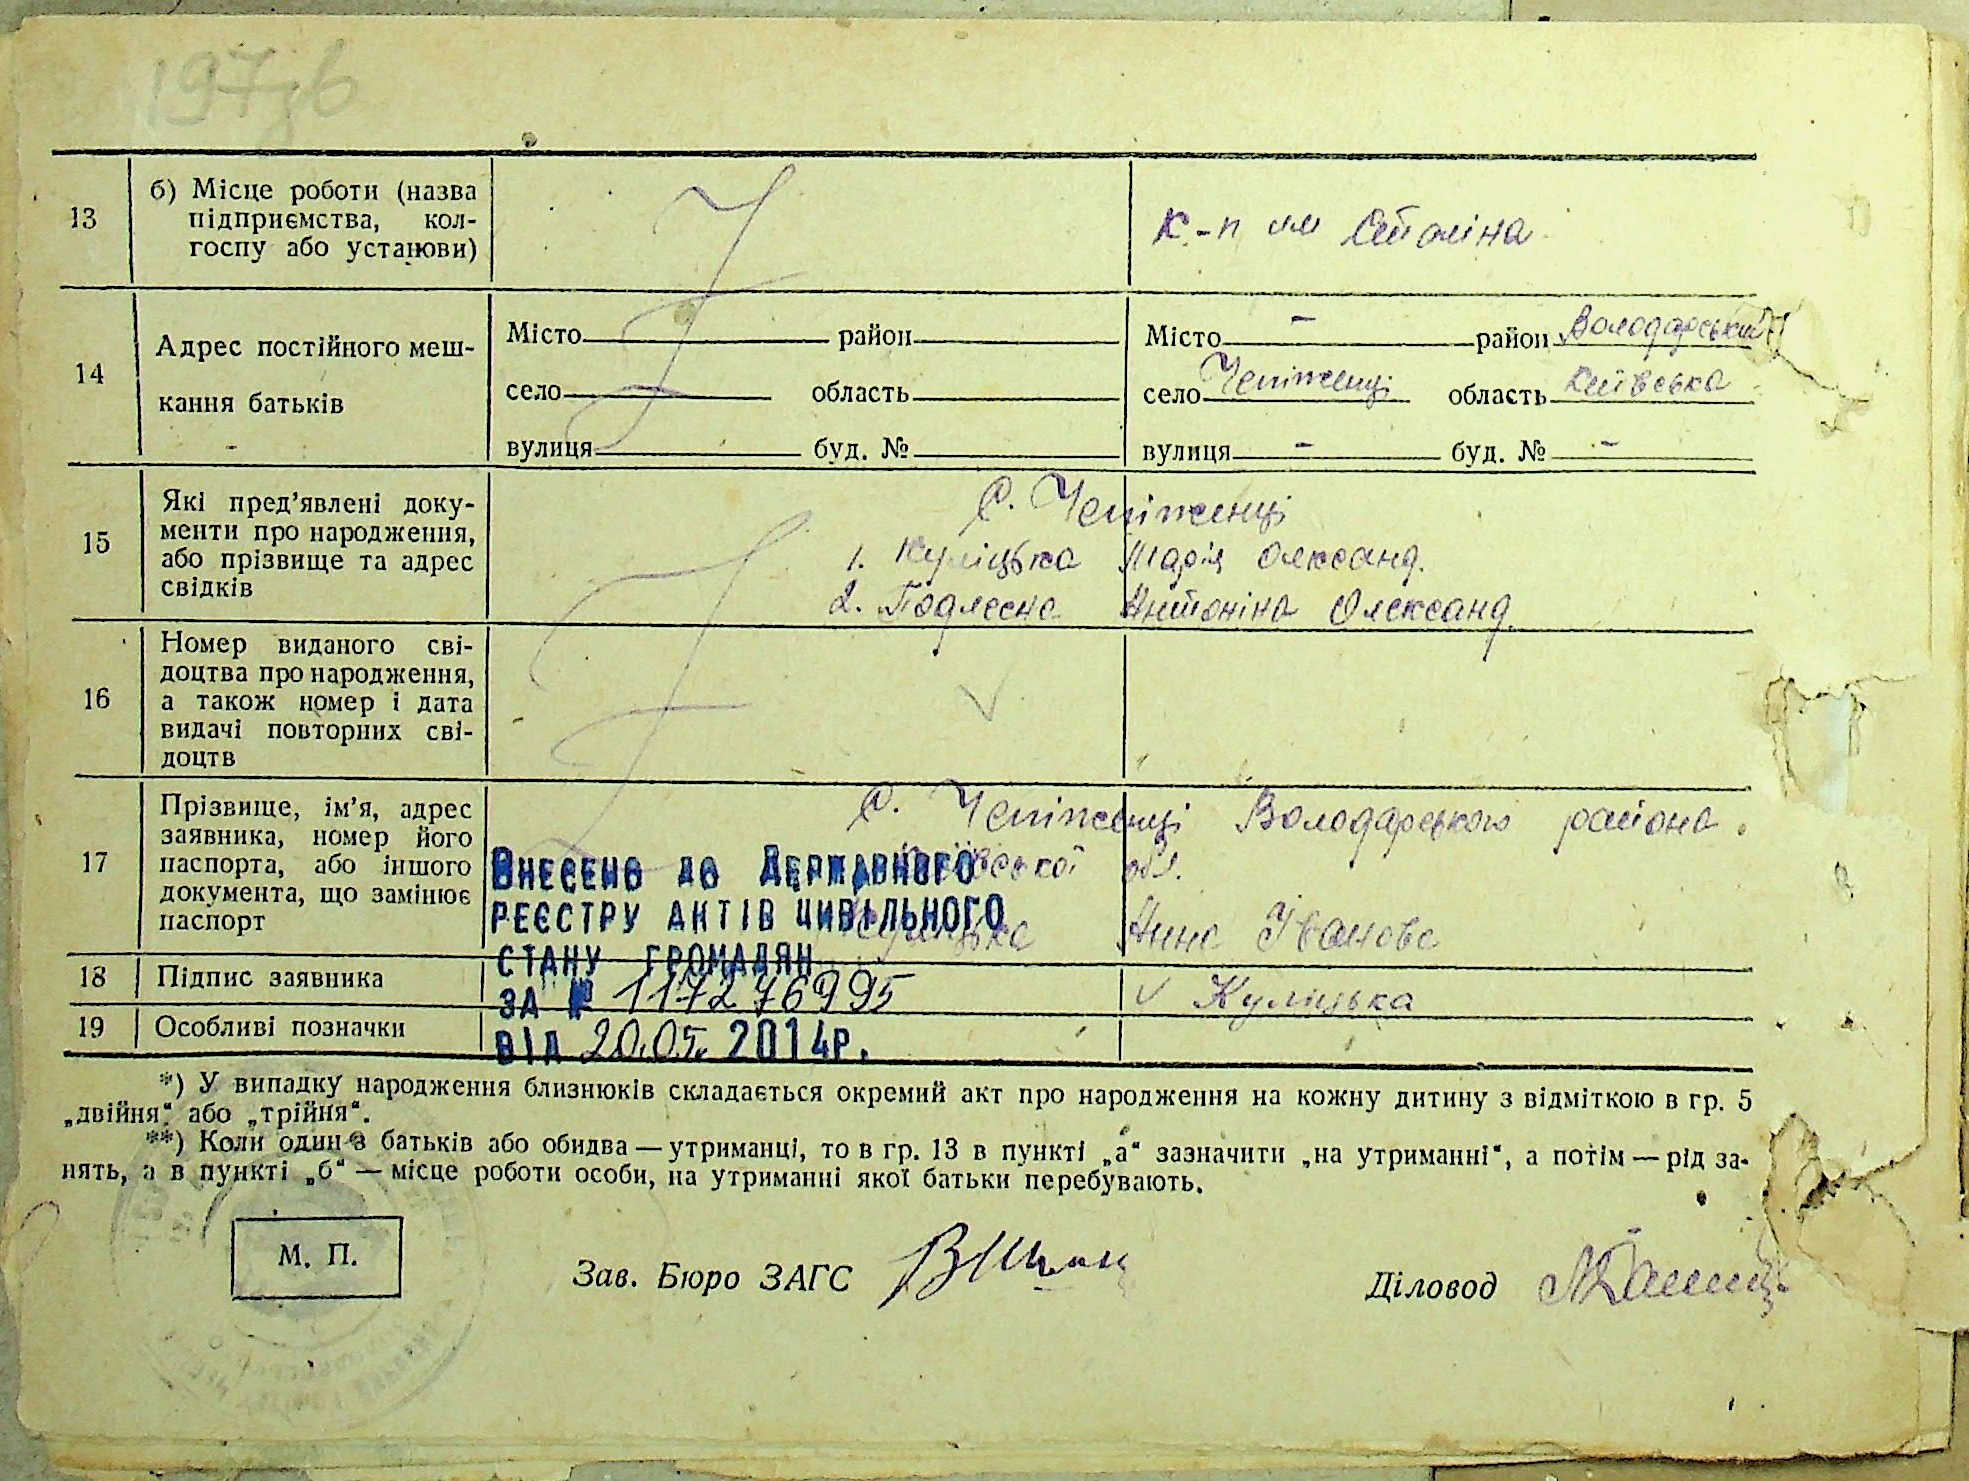 197зв
13
б) Місце роботи (назва
підприємства, кол-
госпу або установи)
к-п им Сталіна
14
Адрес постійного меш-
кання батьків
Місто район
село область
вулиця буд. №
Місто - район Володарський
село Чепіженці область Київська
вулиця - буд. № -
15
Які пред'явлені доку-
менти про народження,
або прізвище та адрес
свідків
С. Чепіженці
1. Куліцька Марія Олександ.
2. Подлесна Антоніна Олександ.
16
Номер виданого сві-
доцтва про народження,
а також номер і дата
видачі повторних сві-
доцтв
17
Прізвище, ім'я, адрес
заявника, номер його
паспорта, або іншого
документа, що замінює
паспорт
С. Чепіженці Володарського района
Київської обл.
Куліцька Анна Іванова
Внесено до Державного
реєстру актів цивільного
стану громадян
за № 117276995
від 20.05. 2014р.
18
Підпис заявника
v Куліцька
19
Особливі позначки
*) У випадку народження близнюків складається окремий акт про народження на кожну дитину з відміткою в гр. 5
„двійня“ або „трійня“.
**) Коли один з батьків або обидва — утриманці, то в гр. 13 в пункті „а“ зазначити „на утриманні“, а потім — рід за-
нять, а в пункті „б“ — місце роботи особи, на утриманні якої батьки перебувають.
М. П.
Зав. Бюро ЗАГС
Діловод